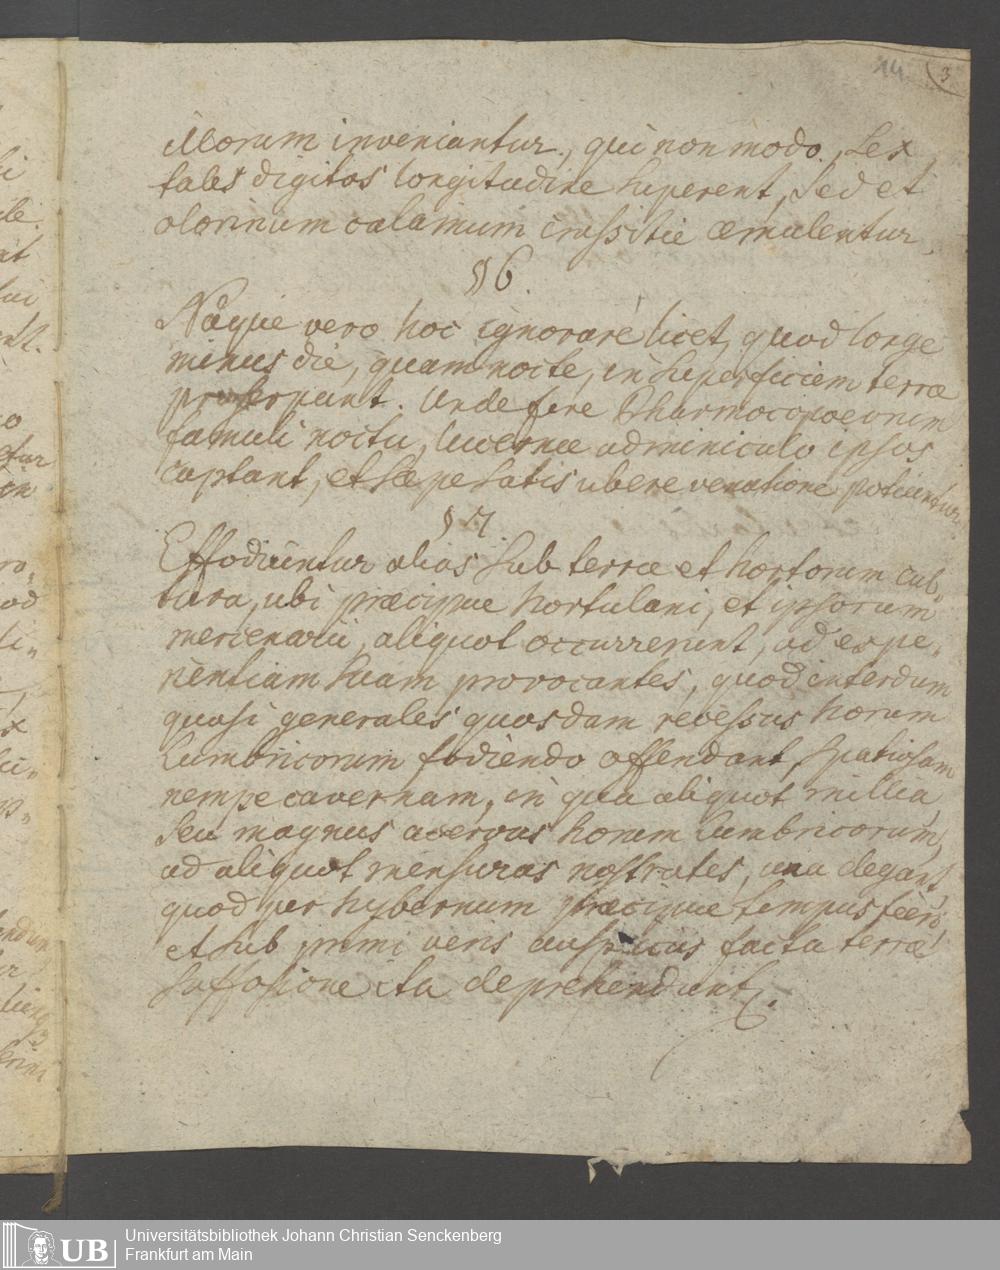 14. 3
illorum inveniantur, qui non modo sex
tales digitos longitudine superent, sed et
olorinum calamum crassitie æmulentur.
§ 6.
Neque vero hoc ignorare licet, quod longe
minus die, quam nocte, in superficiem terræ
proserpant. Unde fere Pharmocopoeorum
famuli noctu, lucernæ adminiculo ipsos
captant, et sæpe satis ubere venatione potiuntur.
§ 7.
Effodiuntur alias sub terræ et hortorum cul„
tura, ubi præcipue hortulani, et ipsorum
mercenarii, aliquot occurrerunt, ad expe„
rientiam suam provocantes, quod interdum
quasi generales quosdam recessus horum
lumbricorum fodiendo offendant, spatiosam
nempe cavernam, in qua aliquot millia,
seu magnus acervus horum lumbricorum,
ad aliquot mensuras nostrates, una degant,
quod per hybernum præcipue tempus fieri
et sub primi veris auspiciis facta terræ
suffosione ita deprehendunt.
UB
Universitätsbibliothek Johann Christian Senckenberg
Frankfurt am Main